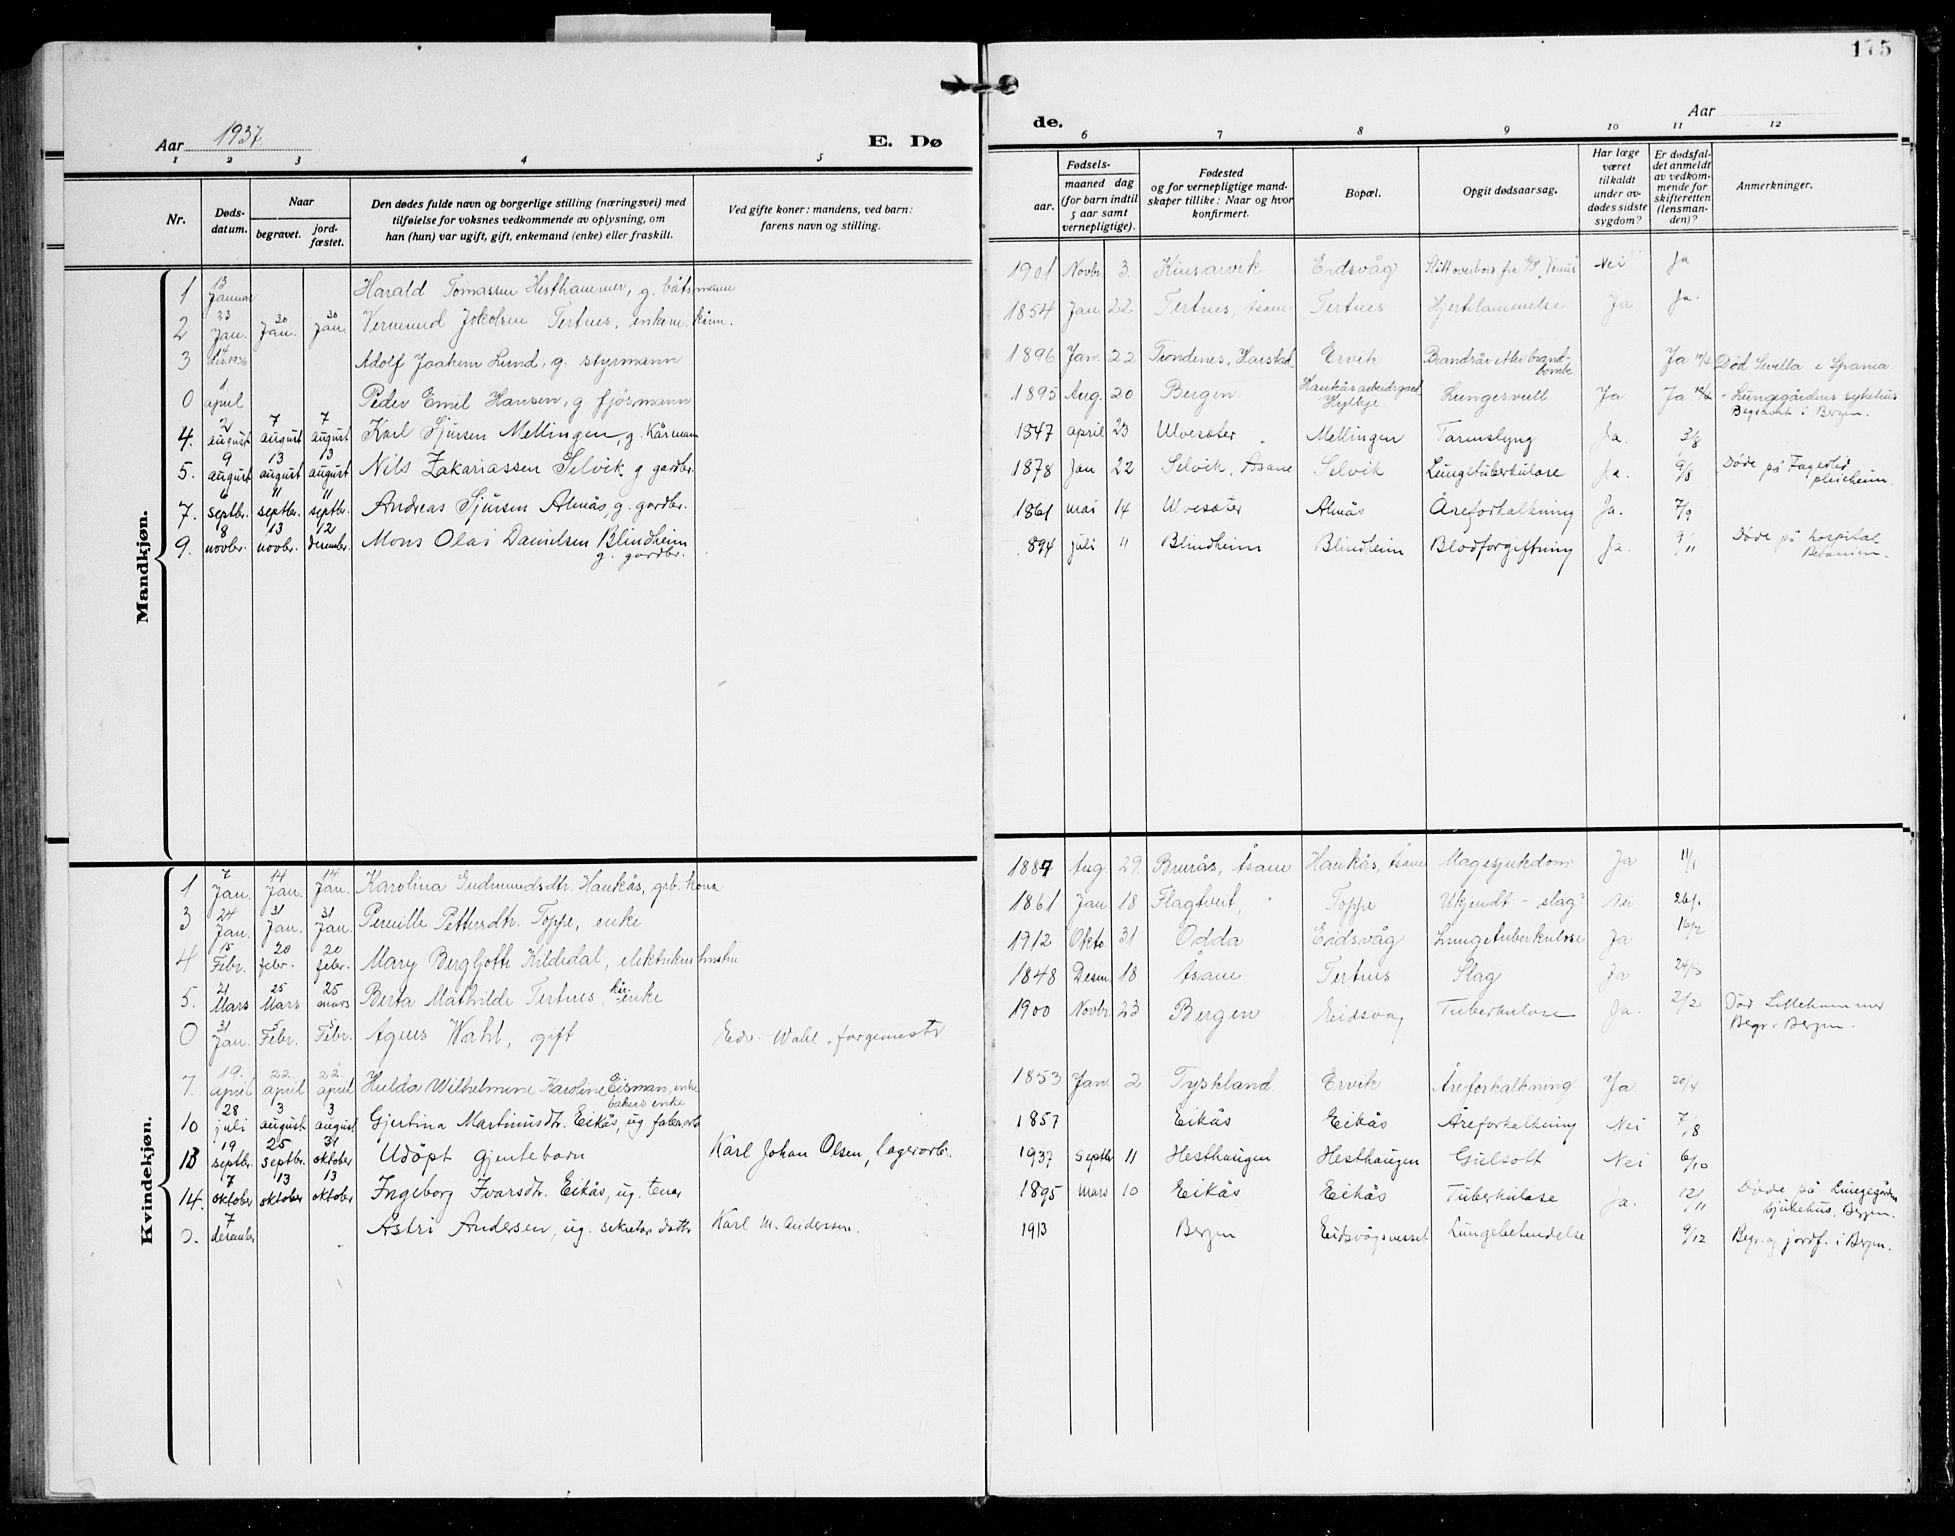 175
Aar 1937
E. Dø
de.
Aar
1 2 3 4 5
6 7 8 9 10 11 12
Nr.
Døds-
datum.
Naar
begravet.
jord-
fæstet.
Den dødes fulde navn og borgerlige stilling (næringsvei) med
tilføielse for voksnes vedkommende av oplysning, om
han (hun) var ugift, gift, enkemand (enke) eller fraskilt.
Ved gifte koner: mandens, ved barn:
farens navn og stilling.
Fødsels-
aar.
maaned dag
(for barn indtil
5 aar samt
vernepligtige).
Fødested
og for vernepligtige mand-
skaper tillike: Naar og hvor
konfirmert.
Bopæl.
Opgit dødsaarsag.
Har læge
været
tilkaldt
under av-
dødes sidste
sygdom?
Er dødsfal-
det anmeldt
av vedkom-
mende for
skifteretten
(lensman-
den)?
Anmerkninger.
Mandkjøn.
1 13 Januar Harald Tomassen Hesthammer, g. båtsmann 1901 Novbr 3. Kinsarvik Eidsvåg Skitt overbors fra "Venus" Nei Ja
2 23 Jan. 30 Jan. 30 Jan. Vermund Jokolsen Tertnes, enkem. kårm. 1854 Jan. 22 Tertnes, Åsane Tertnes Hjertelammelse Ja Ja.
3 4 des. 1936 Adolf Joakim Lund, g. styrmann 1896 Jan. 22 Trondenes, Harstad Ervik Brandsår etter brand-
bombe Ja Død Sevilla i Spania
0 1 april Peder Emil Hansen, g fjösmann 1895 Aug. 20 Bergen Haukås arbeidsgard
Hylkje Lungesvull Ja Ja - Lungegårdens sykehus
Begravet i Bergen.
4. 2 august 7 august 7 august Karl Sjursen Mellingen, g. Kårmann 1847 april 23 Ulvesæter Mellingen Tarmslyng Ja. 3/8
5. 9 august 13 august 13 august Nils Zakariassen Selvik g gardbr. 1878 Jan 22 Selvik, Åsane Selvik Lungetuberkulose Ja. 9/8 Døde på Fagerlid
pleieheim.
7. 6 septbr. 11 septbr. 11 septbr. Andreas Sjursen Almås, g. gardbr. 1861 mai 14 Ulvesæter Almås Åreforkalkning Ja. 7/9
9. 8 novbr. 13 novbr. 12 desember. Mons Olai Danielsen Blindheim
g. gardbr. 894 juli 11 Blindheim Blindheim Blodforgiftning Ja. 9/11 Døde på hospital
Betanien.
Kvindekjøn.
1 7 Jan. 14 Jan. 14 Jan. Karolina Gudmundsdtr. Haukås, grb. kona 1887 Aug. 29. Brurås, Åsane Haukås, Åsane Magesjukdom Ja 11/1
3 24 Jan. 31 Jan. 31 Jan. Pernille Pettersdtr. Toppe, enke 1861 Jan 18 Flagtveit, Toppe Ukjendt - slag? Nei 26/1
4 15 Febr. 20 febr. 20 febr. Mary Bergljotte Kildedal, elektrikers hustru 1912 Okto 31 Odda Eidsvåg Lungetuberkulose Ja 16/2
5. 21 Mars 25 Mars 25 mars Berta Mathilde Tertnes, kår-enke 1848 Desem 18 Åsane Tertnes Slag Ja 24/3
0 31 Jan. 5 Febr. 5 Febr. Agnes Wahl, gift Edv. Wahl, fargemester 1900 Novbr 23 Bergen Eidsvåg Tuberkulose Ja. 2/2 Død Lillehammer
Begr. Bergen.
7. 19. april 22 april 22 april Hulda Wilhelmine Karoline Eisman, enke
bakers enke 1853 Jan. 2 Tyskland Ervik Åreforkalkning Ja 20/4
10 28 juli 3 august 3 august Gjertina Martinusdtr. Eikås, ug fabr.arb 1857 Eikås Eikås Åreforkalkning Nei 7/8
13 19 septbr. 25 septbr. 31 oktober Udöpt gjentebarn Karl Johan Olsen, lagerarb. 1937 septbr 11 Hesthaugen Hesthaugen Gulsott Nei 6/10
14. 7 oktober 13 oktober 13 oktober Ingeborg Ivarsdtr. Eikås, ug. tenar 1895 mars 10 Eikås Eikås Tuberkulose Ja. 12/11 Døde på Lungegården
sjukehus, Bergen.
0. 7 desember Astri Andersen, ug. sekretær datter Karl M. Anderssen. 1913 Bergen Eidsvågsnesset Lungebetendelse 9/12 Begr. og jordf. i Bergen.